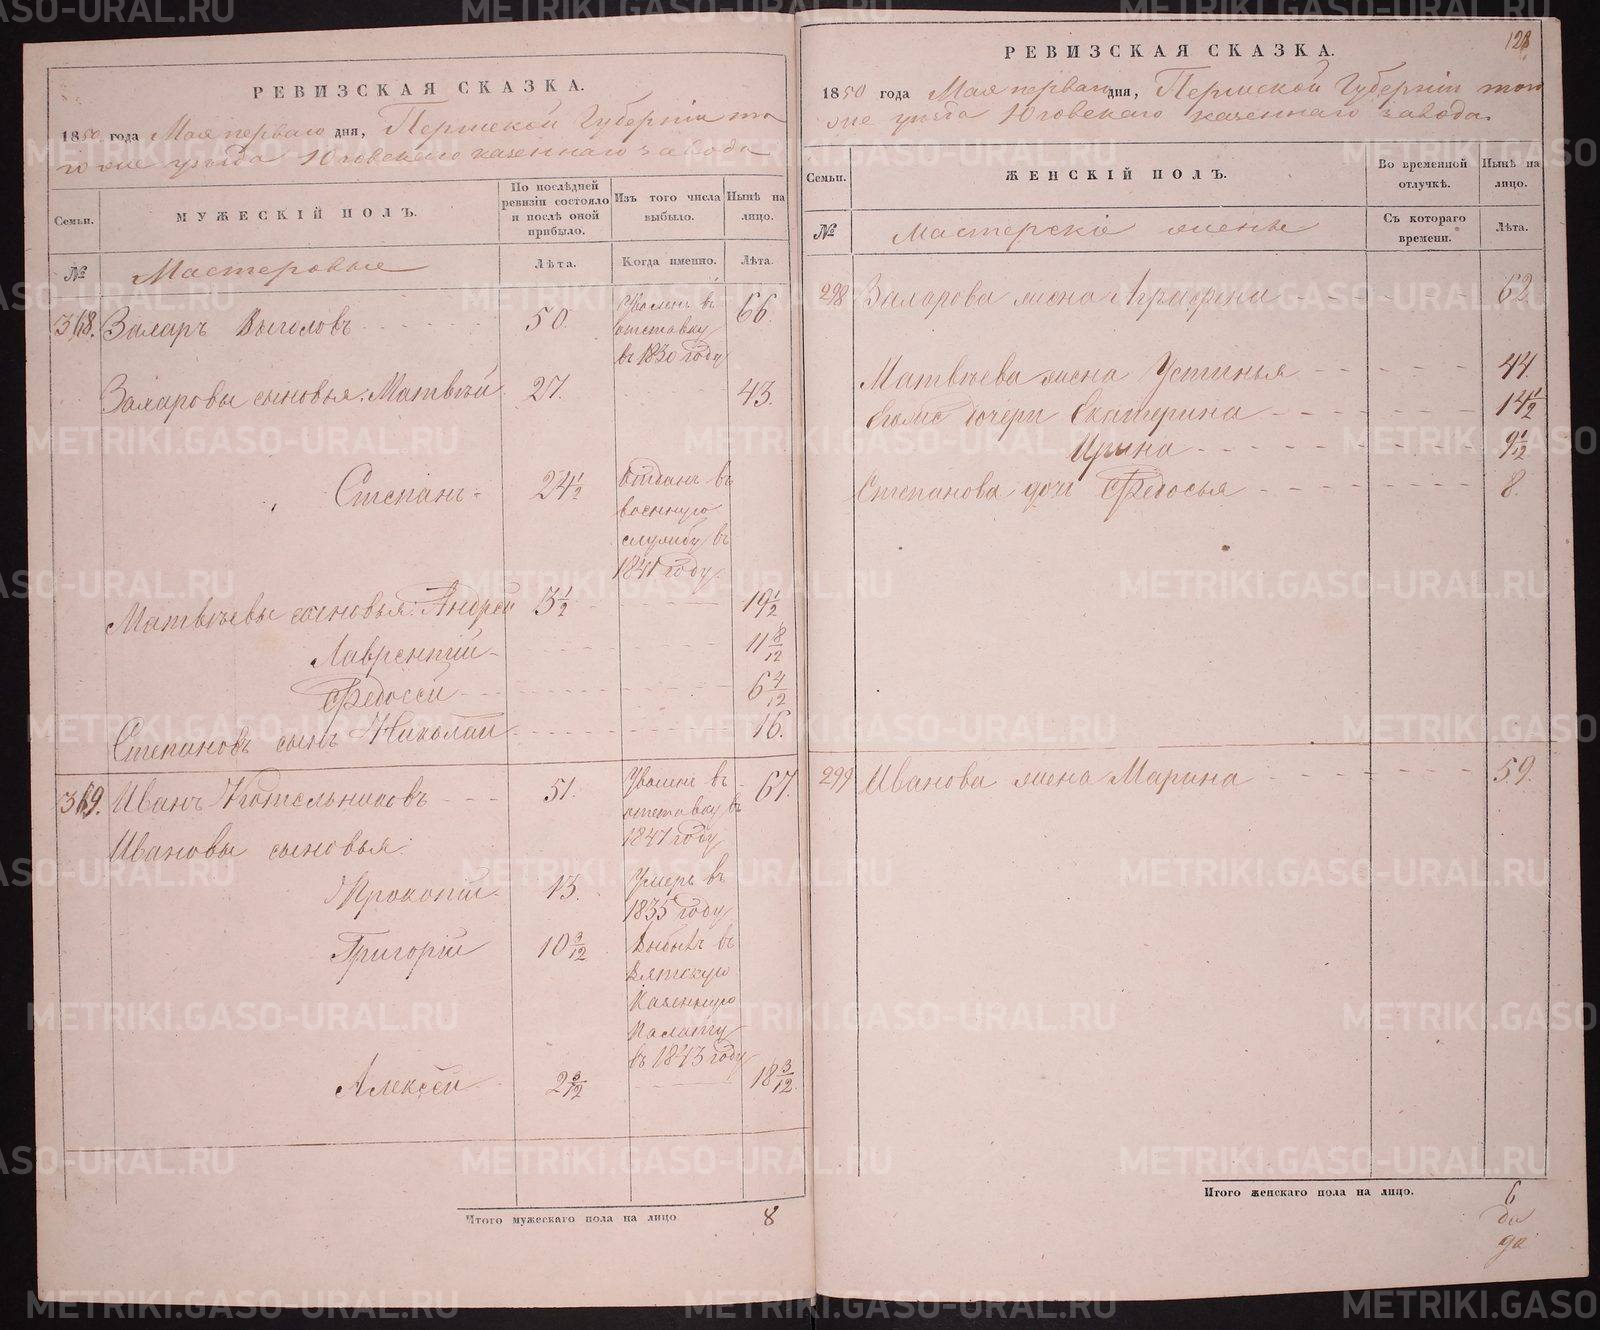 РЕВИЗСКАЯ СКАЗКА.
1850 года Мая перваго дня, Пермской Губернiи то
го же уѣзда Юговскаго казеннаго завода
Семьи.
МУЖЕСКIЙ ПОЛЪ.
По послѣдней ревизiи состояло и послѣ оной прибыло.
Изъ того числа выбыло.
Нынѣ на лицо.
№
Мастеровые
Лѣта.
Когда именно.
Лѣта.
Захаръ Выголовъ 50. Уволенъ въ отставку въ 1830 году 66.
Захаровы сыновья: Матвѣй 27. 43.
Степанъ 24 1/2 Отданъ въ военную службу въ 1841 году.
Матвѣевы сыновья: Андрей 3 1/2 19 1/2
Лаврентiй 11 8/12
Федосѣй 6 4/12
Степановъ сынъ Николай 16.
Иванъ Котельниковъ 51. Уволенъ въ отставку въ 1841 году 67.
Ивановы сыновья:
Прокопiй 13. Умеръ въ 1835 году
Григорiй 10 3/12 Выбылъ въ Вятскую Казенную Палату въ 1843 году
Алексѣй 2 3/12 18 3/12
Итого мужескаго пола на лицо 8
128
РЕВИЗСКАЯ СКАЗКА.
1850 года Мая перваго дня, Пермской Губернiи того
же уѣзда Юговскаго казеннаго завода.
Семьи.
ЖЕНСКIЙ ПОЛЪ.
Во временной отлучкѣ.
Нынѣ на лицо.
№
Мастерскiе жены
Съ котораго времени.
Лѣта.
298 Захарова жена Агрифена 62.
Матвѣева жена Устинья 44.
его дочери Екатерина 14 1/2
Ирина 9 1/12
Степанова дочь Федосья 8.
299 Иванова жена Марина 59.
Итого женскаго пола на лицо. 6
METRIKI.GASO-URAL.RU